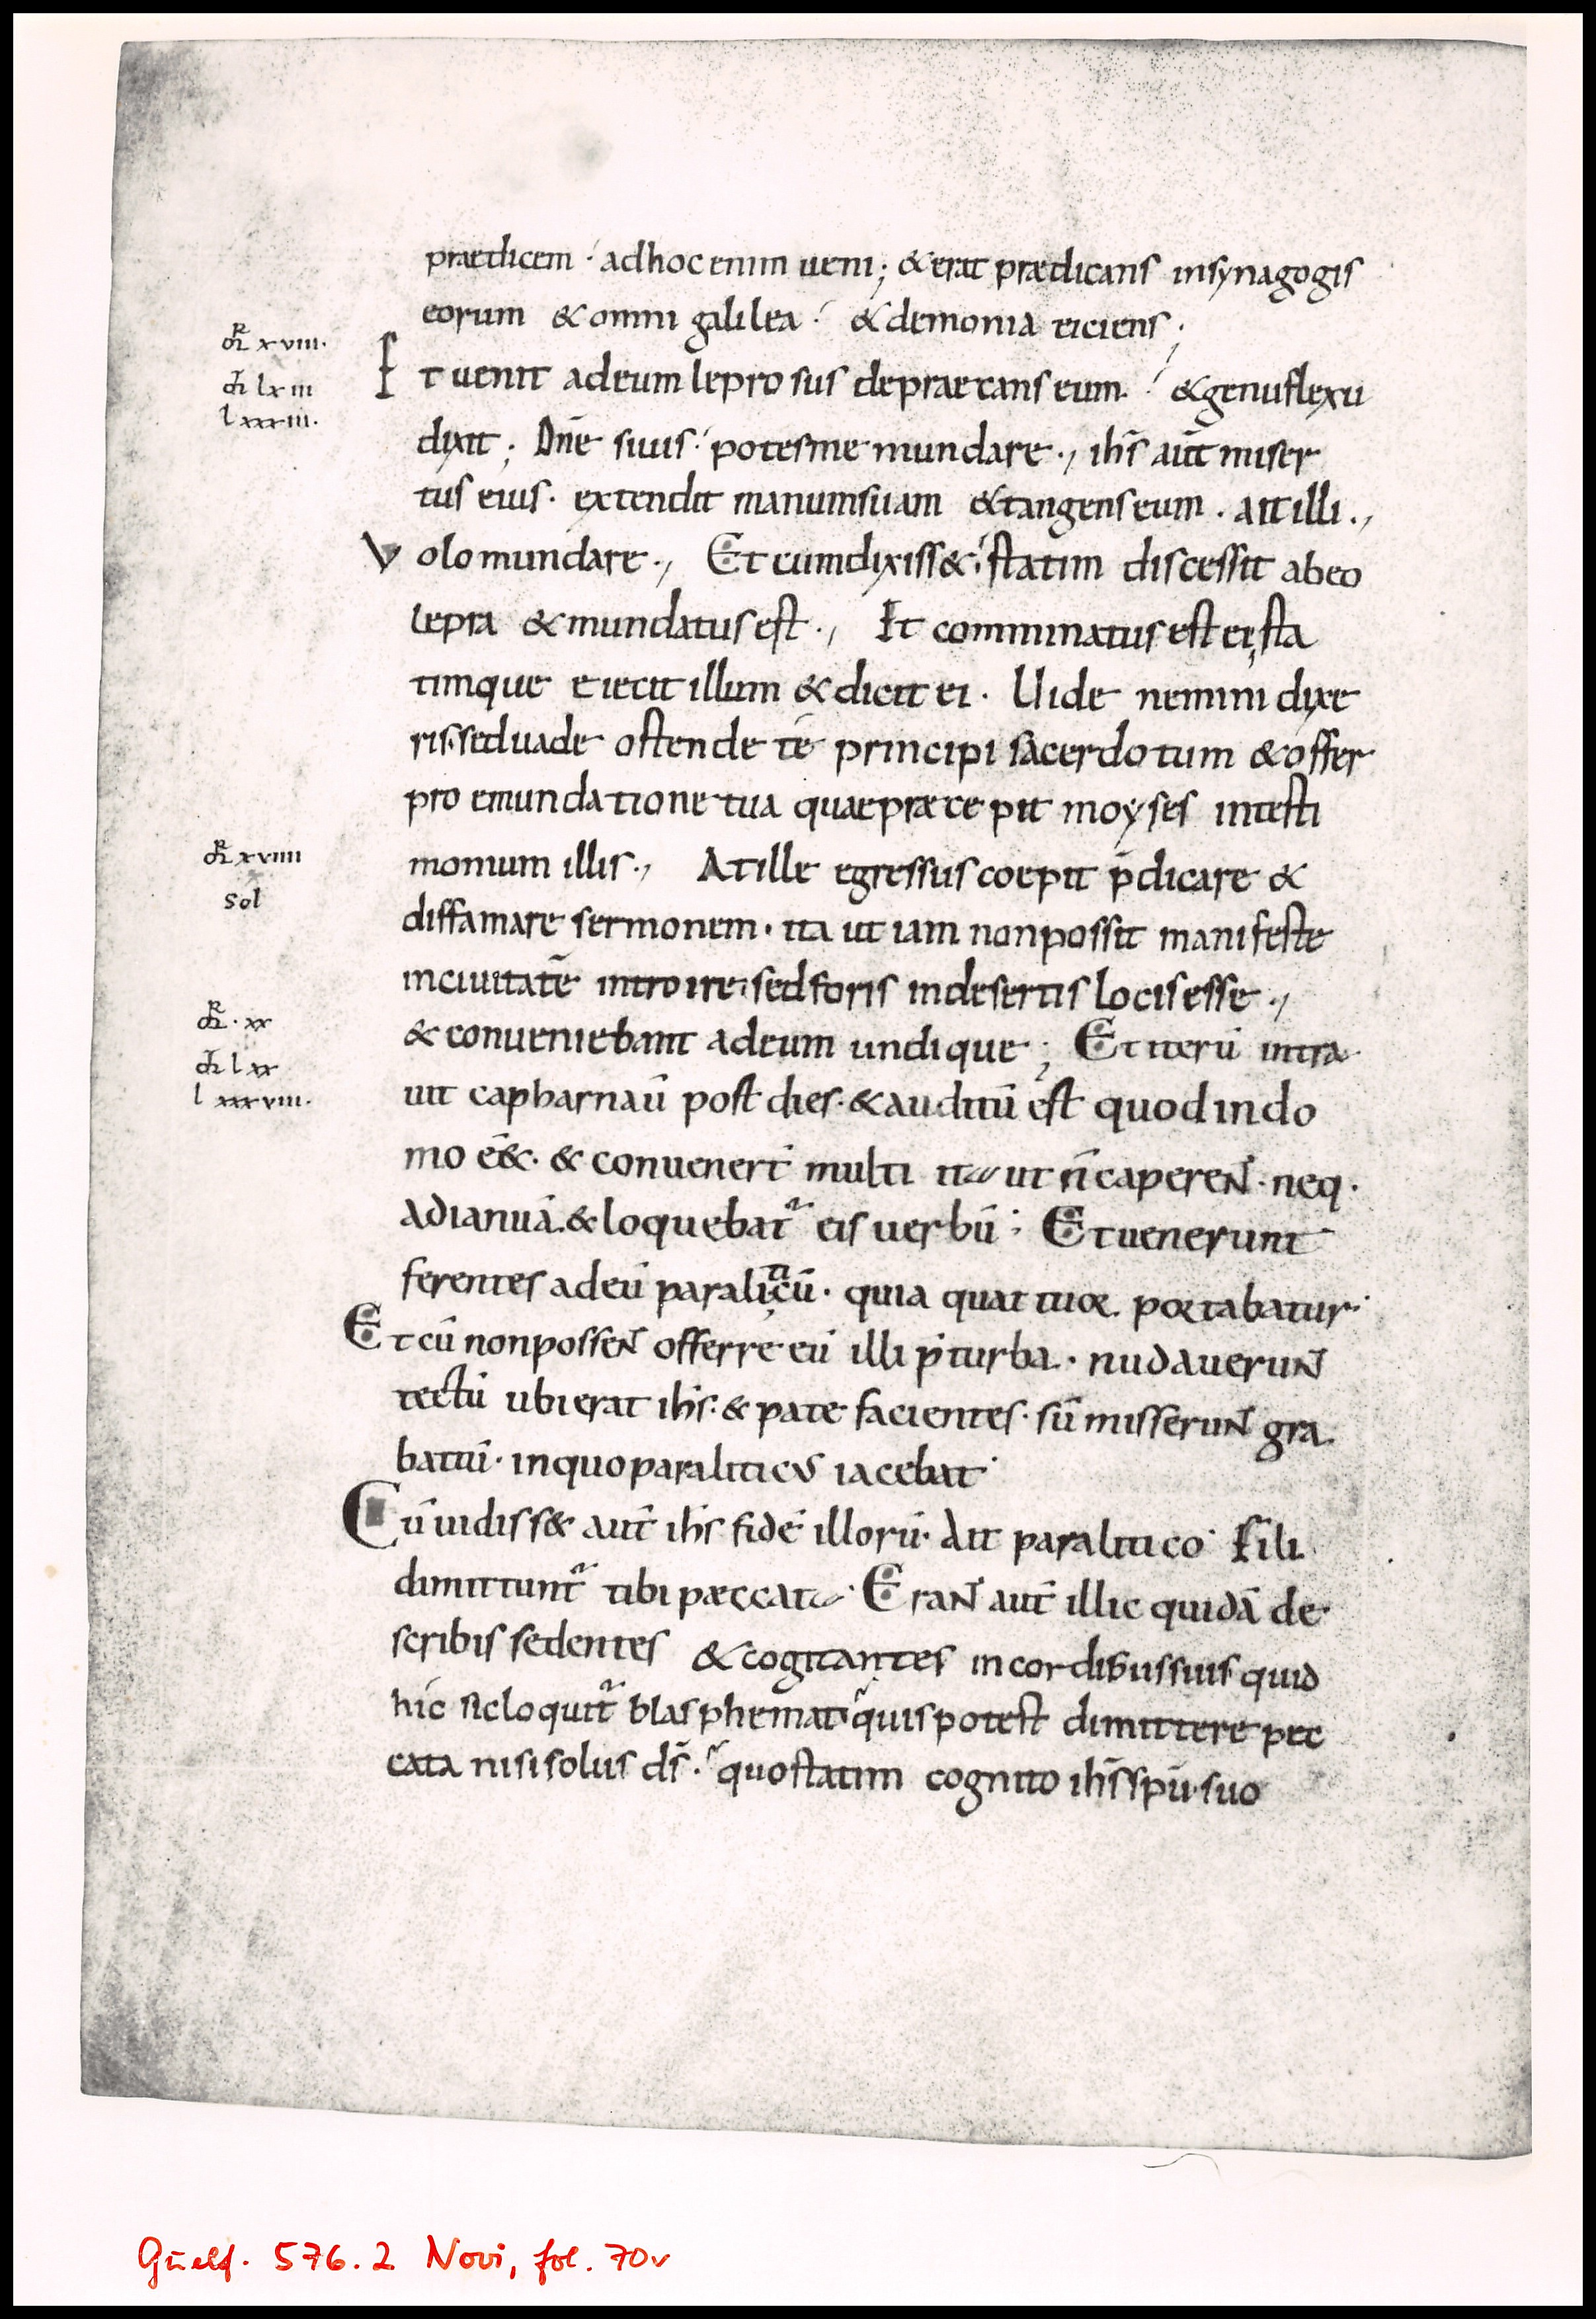 praedicem · adhoc enim ueni ; & erat prædicans insynagogis
eorum & omni galilea · & demonia eiciens ;
Et uenit adeum leprosus depraecans eum · & genuflexu
dixit ; Dn̄e siuis · potesme mundare ., ihs̄ aūt miser
tus eius · extendit manumsuam &tangenseum . aitilli .,
Volo mundare ., Et cumdixiss& · statim discessit abeo
lepra & mundatus est ., Et comminatus est ei, sta
timque eiecit illum & dicit ei . Uide nemini dixe
ris. seduade ostende te principi sacerdotum & offer
pro emundatione tua quaepræcepit moyses intesti
monium illis ., Atille egressus coepit p̄dicare &
diffamare sermonem · ita ut iam nonpossit manifeste
inciuitatē introire, sedforis indesertis locisesse .,
& conueniebant adeum undique ; Et iterū intra
uit capharnaū post dies · & auditū est quod indo
mo eē& · & conuenert̄ multi ita ut n̄ caperent · neq ·
adianuā. & loquebat᷑ eis uerbū ; Et uenerunt
ferentes adeū paraliticū · quia quattuor portabatur ·
Et cū nonpossent offerre eū illi p̄ turba · nudauerunt
tectū ubi erat ihs · & pate facientes · sūmisserunt gra
batū · inquo paraliticus iacebat ·
Cū uidiss& aut̄ ihs̄ fidē illorū · Ait paralitico · Fili
dimittunt᷑ tibi pæccata · Erant aut̄ illic quidā de
scribis sedentes & cogitantes incordibussuis quid
hic sicloquit᷑ blasphemat quispotest dimittere pec
cata nisisolus ds̄ · quostatim cognito ihs̄ spū suo
d̄r xviii.
d̄i lxiii
lxxxiii.
d̄r xviiii
sol
d̄r · xx
d̄i lxx
lxxxviii.
Guelf. 576.2 Novi, fol. 70v